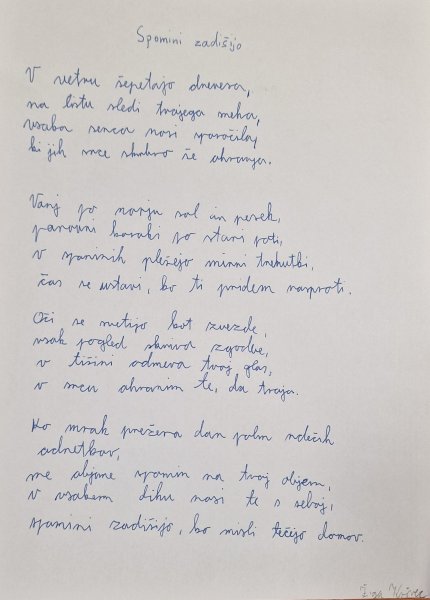 Spomini zadišijo
V vetru šepetajo drevesa,
na listu sledi tvojega meha,
vsaka senca nosi sporočilo,
ki jih srce skrbno še ohranja.
Vonj po morju sol in pesek,
ponovni koraki po stari poti,
v spominih plešejo mirni trenutki,
čas se ustavi, ko ti pridem nasproti.
Oči se svetijo kot zvezde,
vsak pogled skriva zgodbe,
v tišini odmeva tvoj glas,
v srcu ohranim te, da traja.
Ko mrak prežene dan poln rdečih
odtenkov,
me objame spomin na tvoj objem,
v vsakem dihu nosi te s seboj,
spomini zadišijo, ko misli tečejo domov.
Žiga